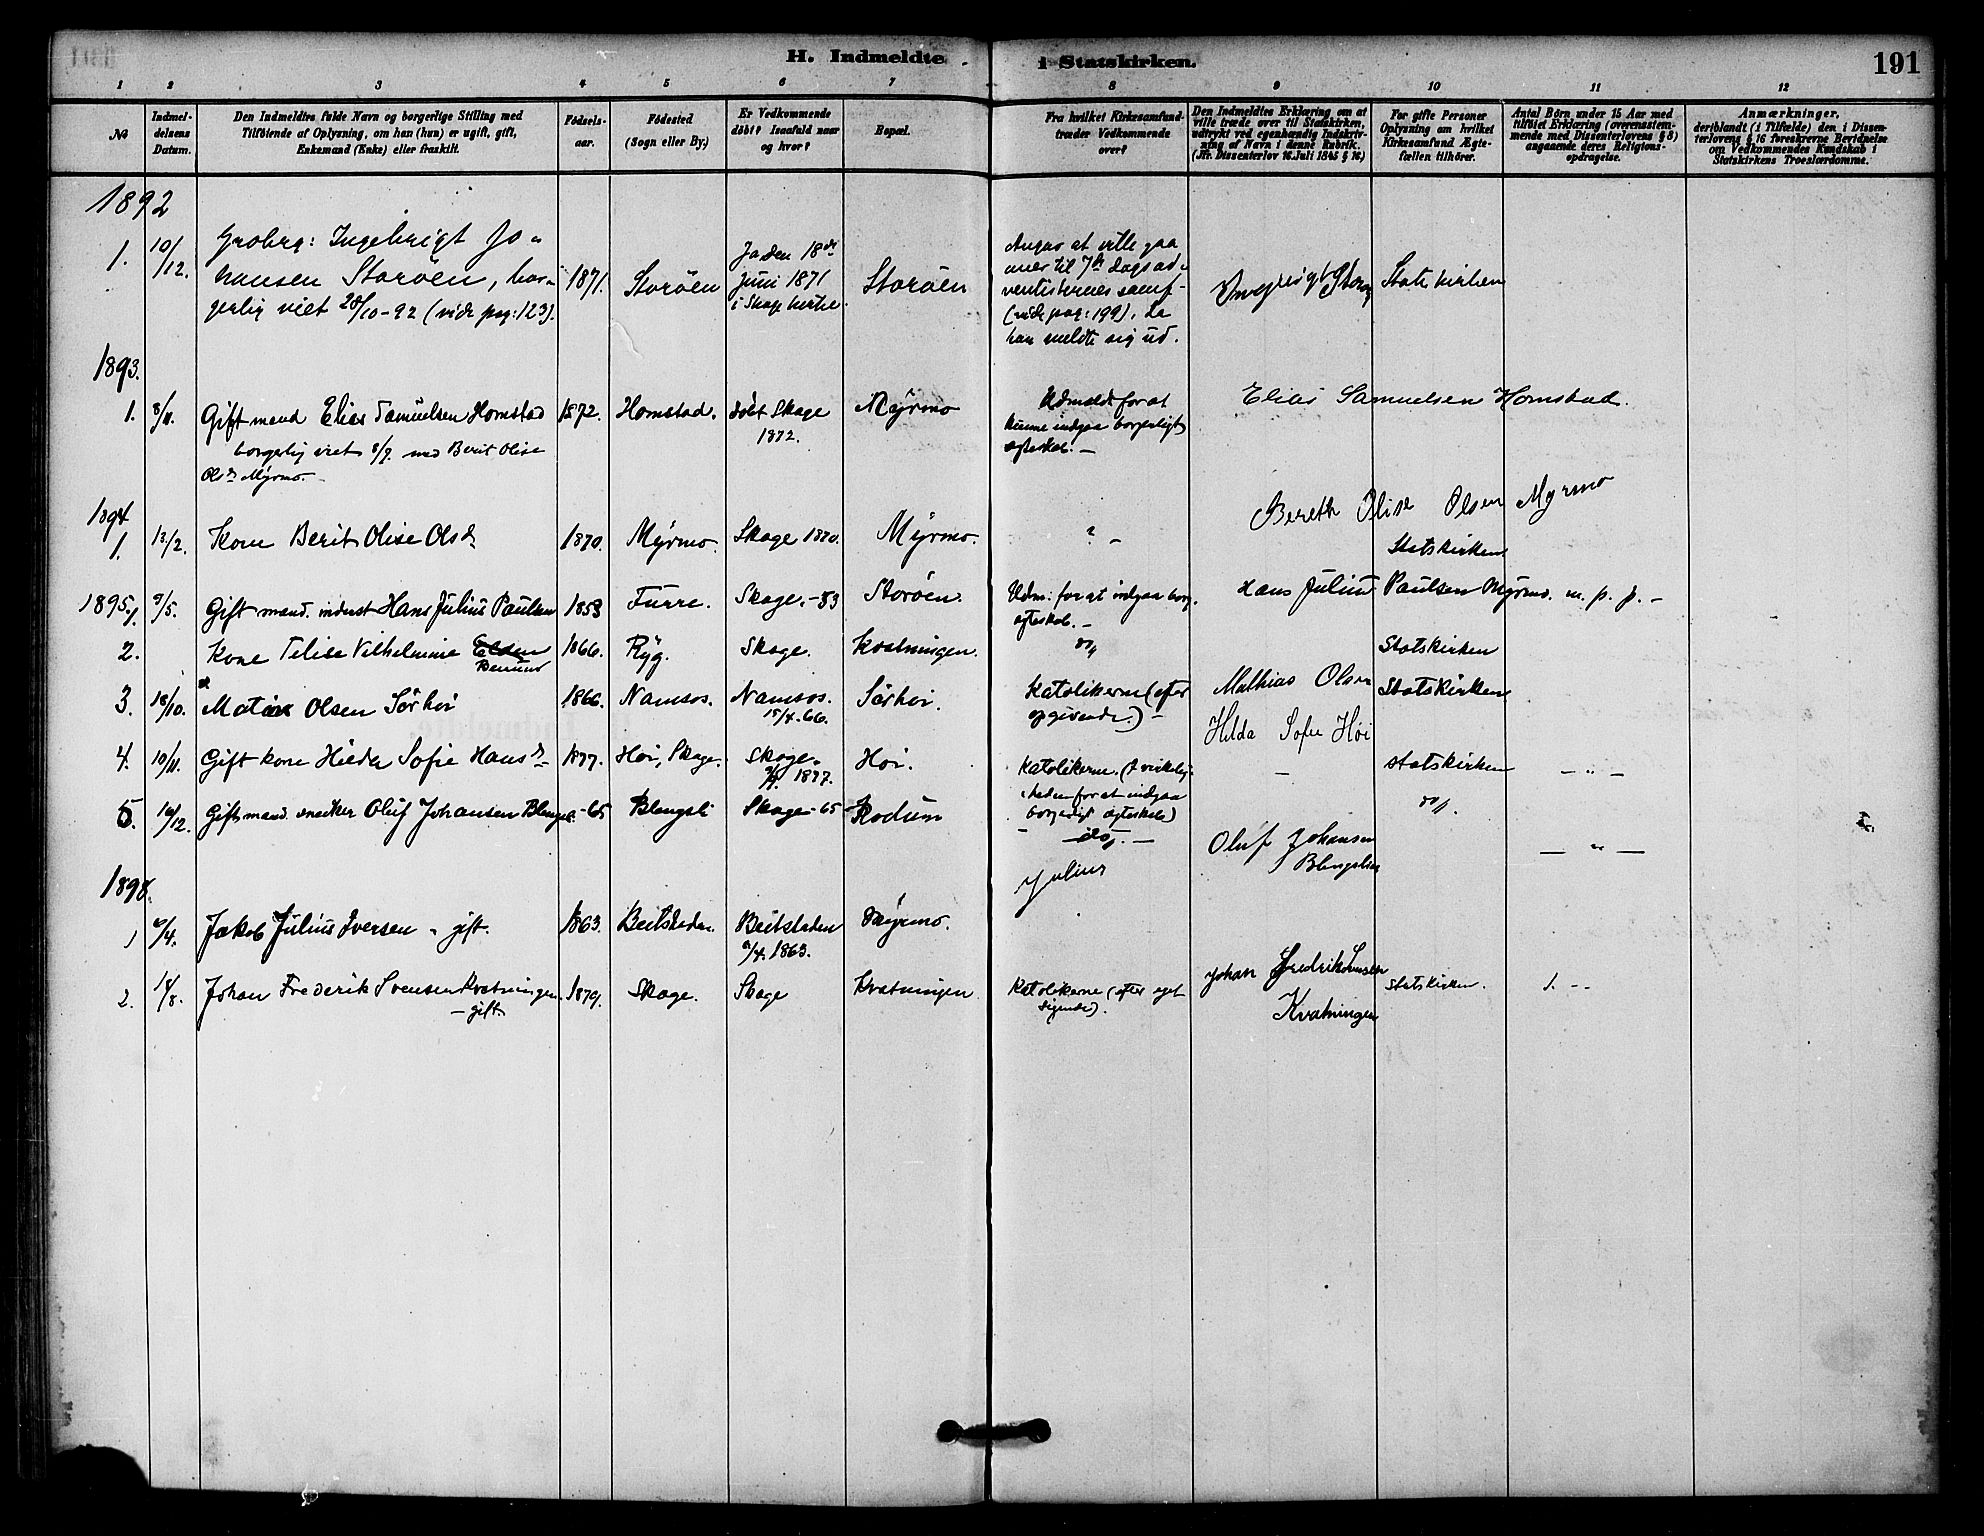 H. Indmeldte i Statskirken. 191
1 2 3 4 5 6 7 8 9 10 11 12
№
Indmeldelsens Datum.
Den Indmeldtes fulde Navn og borgerlige Stilling med
Tilföiende af Oplysning, om han (hun) er ugift, gift,
Enkemand (Enke) eller fraskilt.
Födselsaar.
Födested
(Sogn eller By.)
Er Vedkommende
döbt? Isaafald naar
og hvor?
Bopæl.
Fra hvilket Kirkesamfund
træder Vedkommende
over?
Den Indmeldtes Erklæring om at
ville træde over til Statskirken,
udtrykt ved egenhændig Indskriv-
ning af Navn i denne Rubrik.
(Jfr. Dissenterlov 16. Juli 1845 § 16.)
For gifte Personer
Oplysning om hvilket
Kirkesamfund Ægte-
fællen tilhörer.
Antal Börn under 15 Aar med
tilföiet Erklæring (overensstem-
mende med Dissenterlovens § 8)
angaaende deres Religions-
opdragelse.
Anmærkninger,
deriblandt (i Tilfælde) den i Dissen-
terlovens § 16 foreskrevne Bevidnelse
om Vedkommendes Kundskab i
Statskirkens Troeslærdomme.
1892
1. 10/12.
Ingebrigt Jo-
hansen Storöen, bor-
gerlig viet 28/10-92 (vide pag: 123).
1871. Storöen
Ja den 18de
Juni 1871
i Skage kirke.
Storöen
Angav at ville gaa
over til 7de dags ad-
ventisternes samf-
(vide pag: 199), da
han meldte sig ud.
Statskirken
1893.
1. 8/11. Gift mand Elias Samuelsen Homstad 1872. Homstad. döbt Skage
1872.
Myrmo
borgerlig viet 8/7. med Berit Olise
Olsdr Myrmo.
Udmeldt for at
kunne indgaa borgerligt
ægteskab. —
Elias Samuelsen Homstad.
1894
1. 13/2. Kone Berit Olise Olsdr 1870. Myrmo. Skage 1870. Myrmo. ? —
Bereth Olise Olsen Myrmo
Statskirken
1895.
1. 9/5. Gift mand. inderst Hans Julius Paulsen 1853 Furre. Skage. -53 Storöen.
Udm. for at indgaa borg.
ægteskab. —
Hans Julius Paulsen Myrmo. m. p. p. —
2. Kone Telise Vilhelmine 1866. Ryg. Skage. Kvatningen. do/ Statskirken
3. 18/10. Olsen Sörhöi 1866. Namsos. Namsos.
15/4-66.
Sörhöi.
Katolikerne (efter
opgivende.) —
Mathias Olsen Statskirken
4. 10/11. Gift kone Hilda Sofie Hansdr 1877. Höi, Skage. Skage.
1877.
Höi.
Hilda Sofie Höi
Statskirken — " —
borgerligt ægteskab)
5. 10/12. Gift mand. snedker Oluf Johansen -65 Blengsli Skage -65 Rodum
— do/. —
Oluf Johansen
do/. — " —
1898.
Julius
1 Jakob Julius Iversen - gift. 1863. Beitstaden. Beitstaden
1863.
Myrmo.
2. 14/8. Johan Frederik Svensen Kvatningen. 1879. Skage. Skage Kvatningen
— gift.
Katolikerne (efter eget
sigende).
Johan Fredrik Svensen
Kvatningen
Statskirken. 1. --